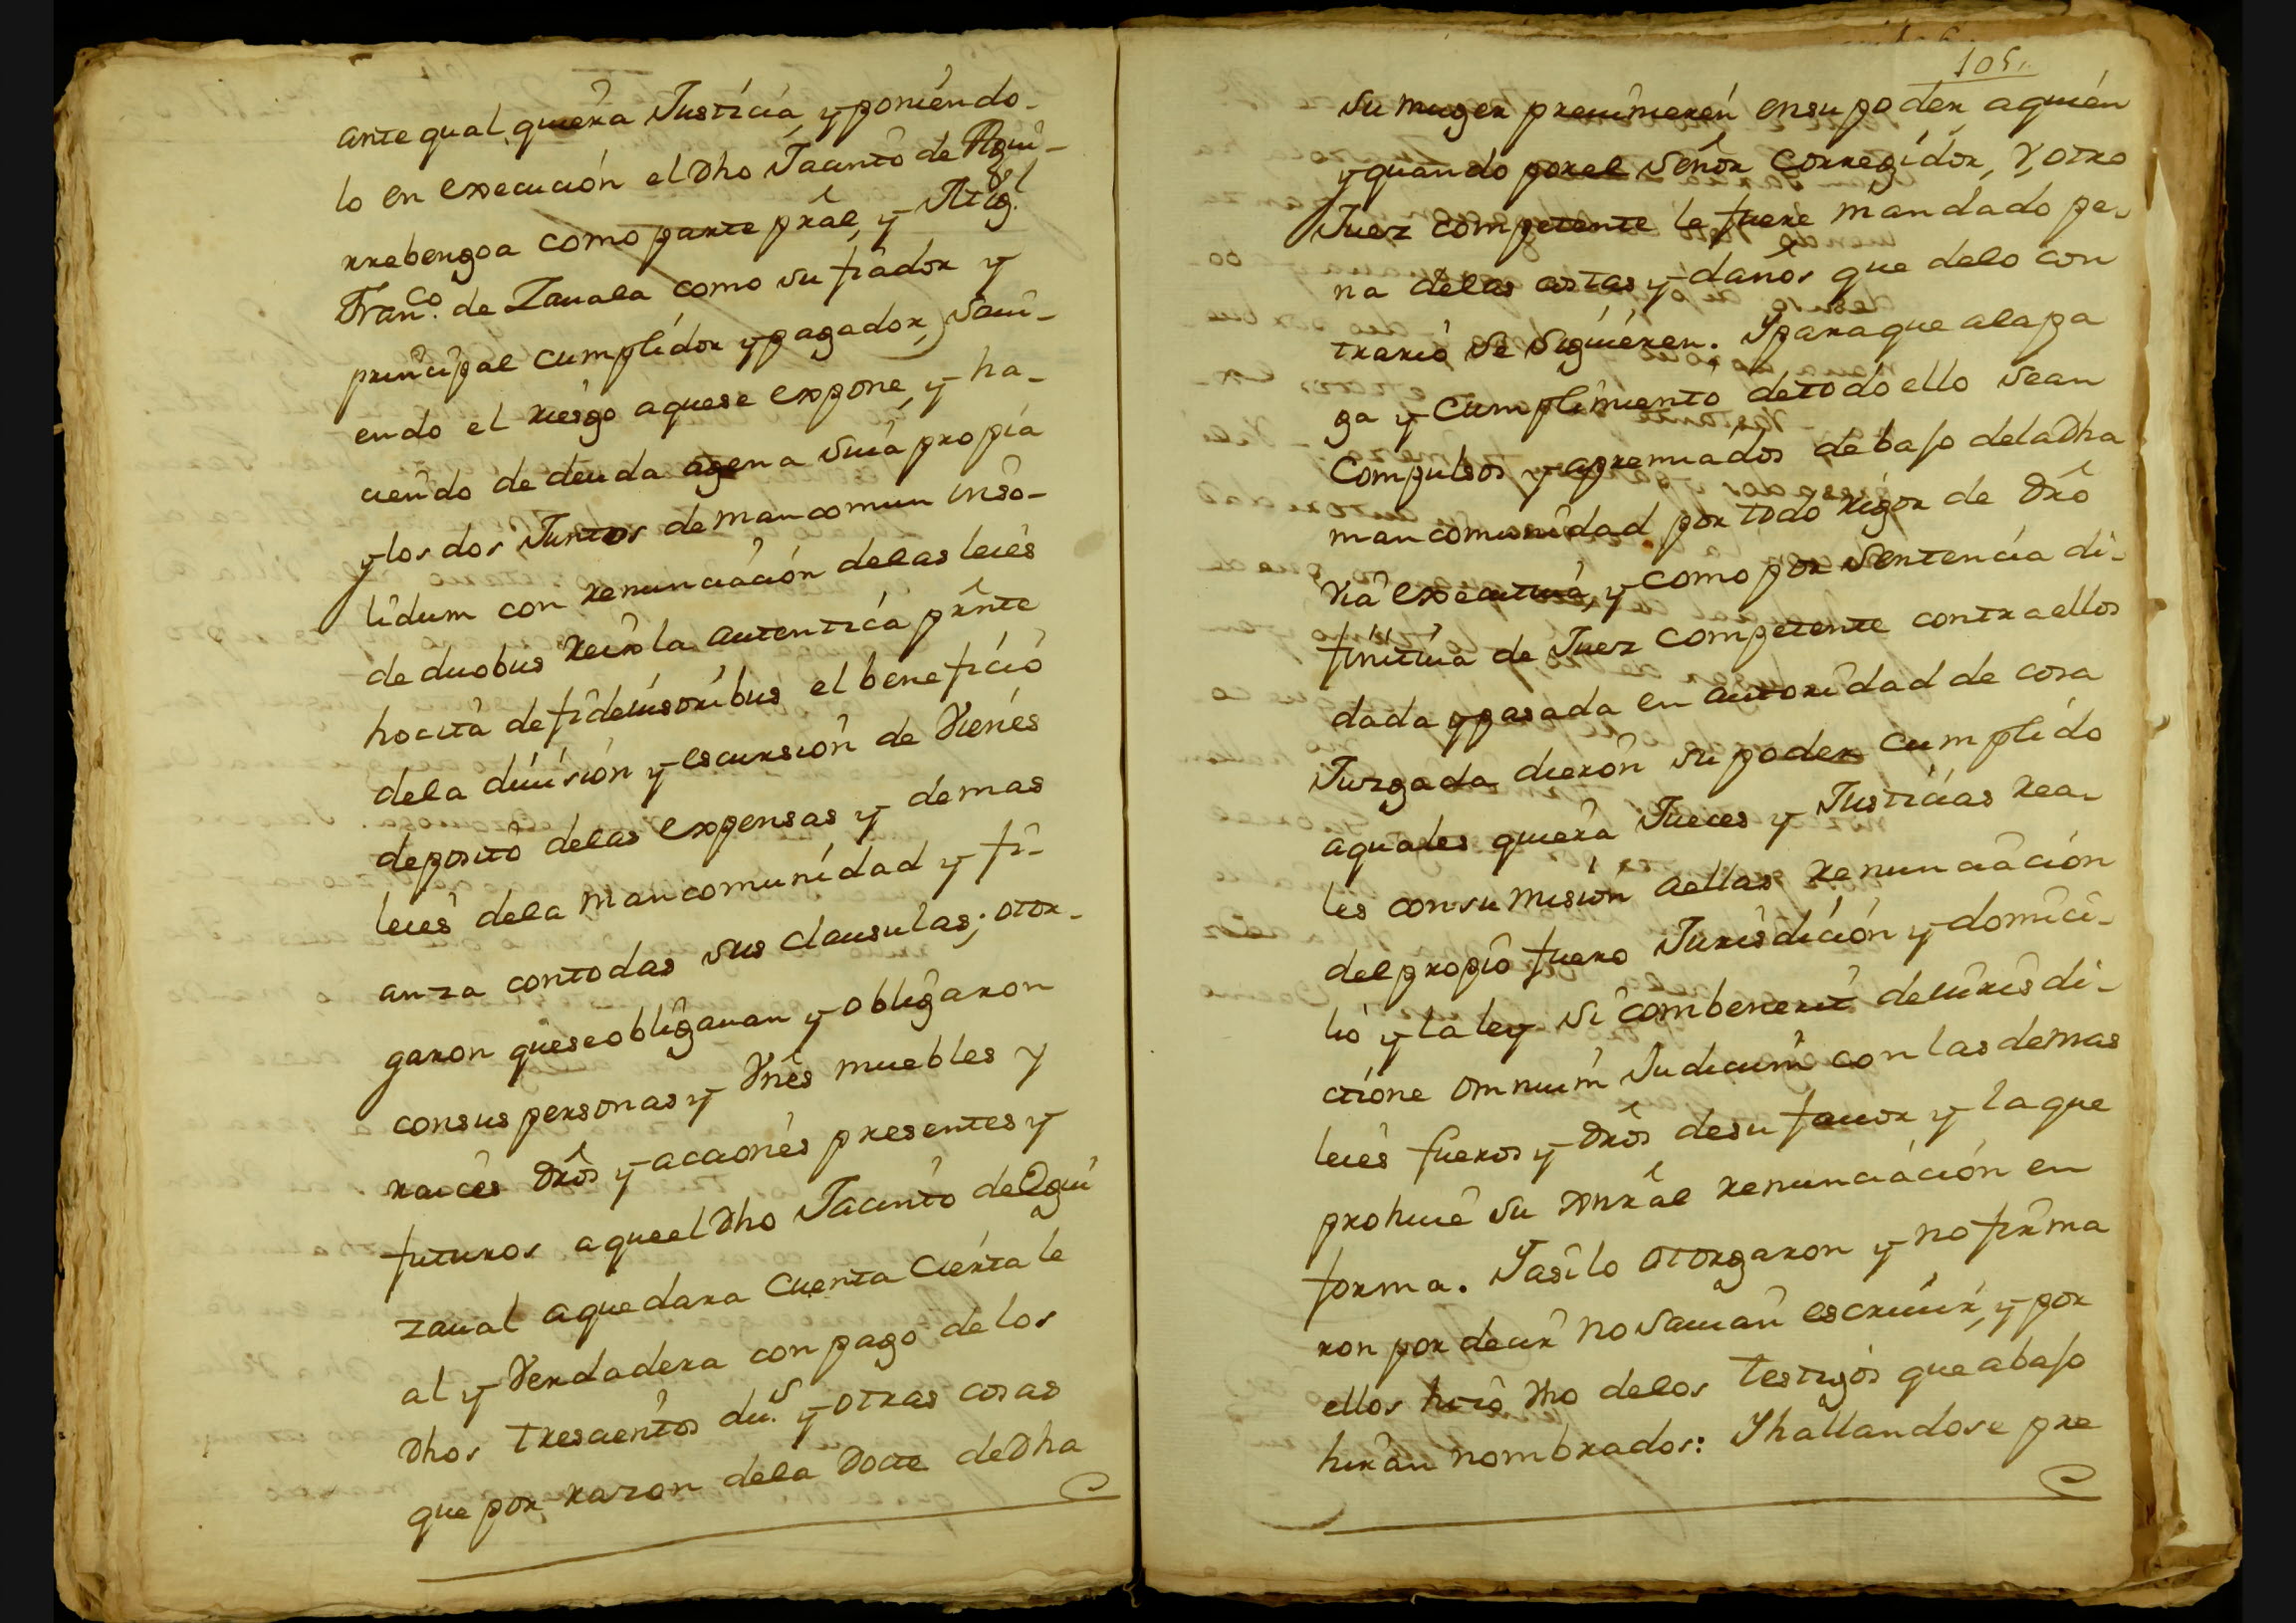 ante qual quiera Justicia y poniendo-
lo en execución el dho Jacinto de Agui-
rrebengoa como parte prãl, y
Franco. de Zauala como su fiador y
principal cumplidor y pagador, saui-
endo el riesgo aquese expone, y ha-
ciendo de deuda agena suia propia
y los dos Juntos de mancomun inso-
lidum con renunciación delas leies
de duobus reis la autentica prente
hocita de fideiusoribus el beneficio
dela diuisión y escursion de Vienes
deposito delas expensas y demas
leies dela mancomunidad y fi-
anza contodas sus clausulas; otor-
garon queseobligauan y obligaron
consus personas y Vnes muebles y
raices dros y acciones presentes y
futuros aqueel dho Jacinto de Egui
zaual aquedara cuenta cierta le
al y Verdadera con pago delos
dhos trescientos du.s y otras cosas
que por razon dela Docte dedha
105.
su muger preuinieren ensu poder aquien
y quando porel señor Corregidor, y otro
Juez competente le fuere mandado pe-
na delas costas y daños que delo con
trario se siguieren. Y paraque ala pa
ga y cumplimiento detodo ello sean
compulsos y apremiados debajo dela dha
mancomunidad por todo rigor de dro
via executiua, y como por sentencia di-
finitiua de Juez competente contra ellos
dada y pasada en autoridad de cosa
Juzgada dieron su poder cumplido
aquales quiera Jueces y Justicias rea-
les consumisión aellas renunciación
del propio fuero Jurisdición y domici-
lio y la ley si combenerit deiurisdi-
ctione omnium Judicum con las demas
leies fueros y dros desu fauor y la que
prohiue su gnral renunciación en
forma. Yasilo otorgaron y no firma
ron por decir no sauian escriuir, y por
ellos hizo Vno delos testigos que abajo
hiran nombrados: Y hallandose pre